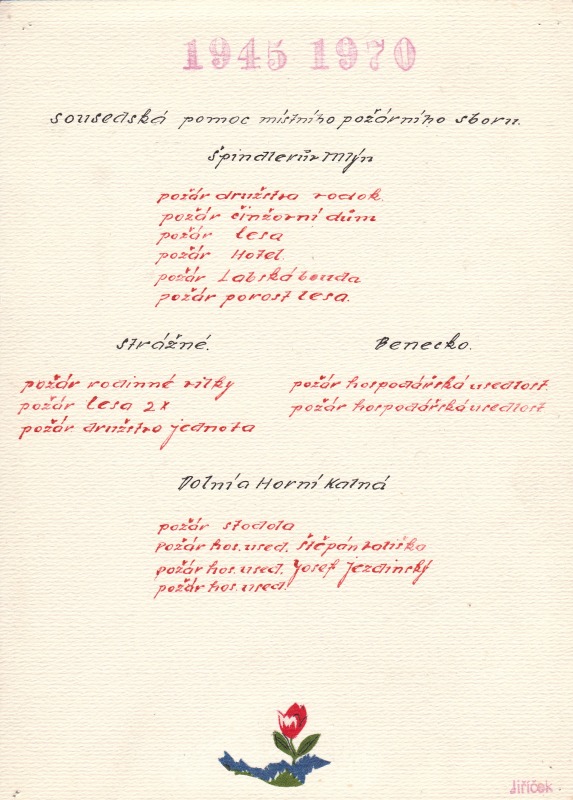 1945 1970
sousedská pomoc místního požárního sboru.
Špindlerův Mlýn
požár družstva vodok.
požár činžovní dům
požár lesa
požár Hotel.
požár Labská bouda
požár porost lesa.
strážné.
Benecko.
požár rodinné vilky
požár hospodářská usedlost
požár lesa 2x
požár hospodářská usedlost
požár družstvo jednota
Dolní a Horní Kalná
požár stodola
Požár hos. used. Štěpán
požár hos. used. Josef Jezdinský
požár hos. used.
Jiříček